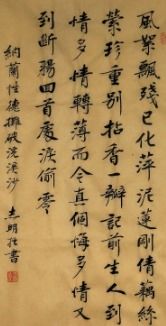 風絮飄殘已化萍泥蓮剛倩藕絲
縈珍重別拈香一瓣記前生人到
情多情轉薄而今真個悔多情又
到斷腸回首處淚偷零
納蘭性德攤破浣溪沙
明 書